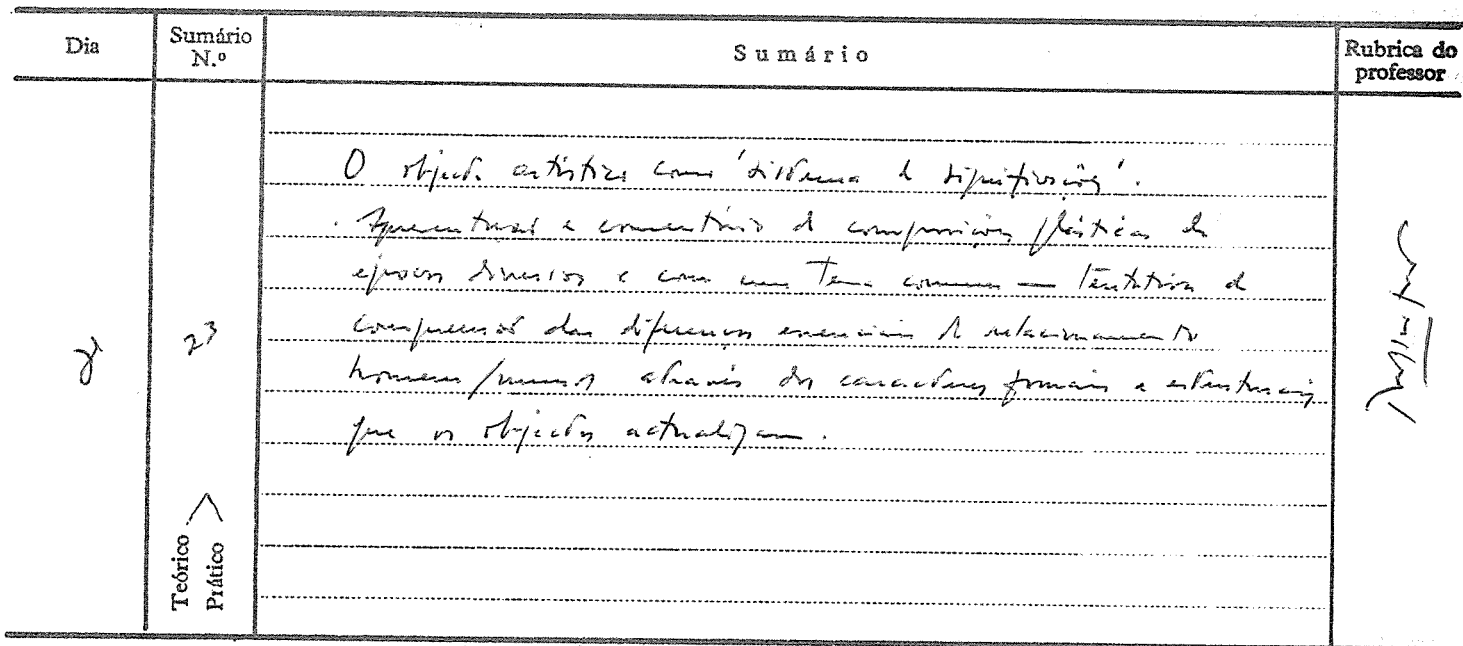 Dia
Sumário N.º
Sumário
Rubrica do professor
23
O objecto artístico como 'sistema de significações'.
. Apresentação e comentário de composições plásticas de
épocas diversas e com um tema comum — Tentativa de
compreensão das diferenças essenciais de relacionamento
homem/mundo através dos caracteres formais e estruturais
que os objectos actualizam.
Teórico
Prático